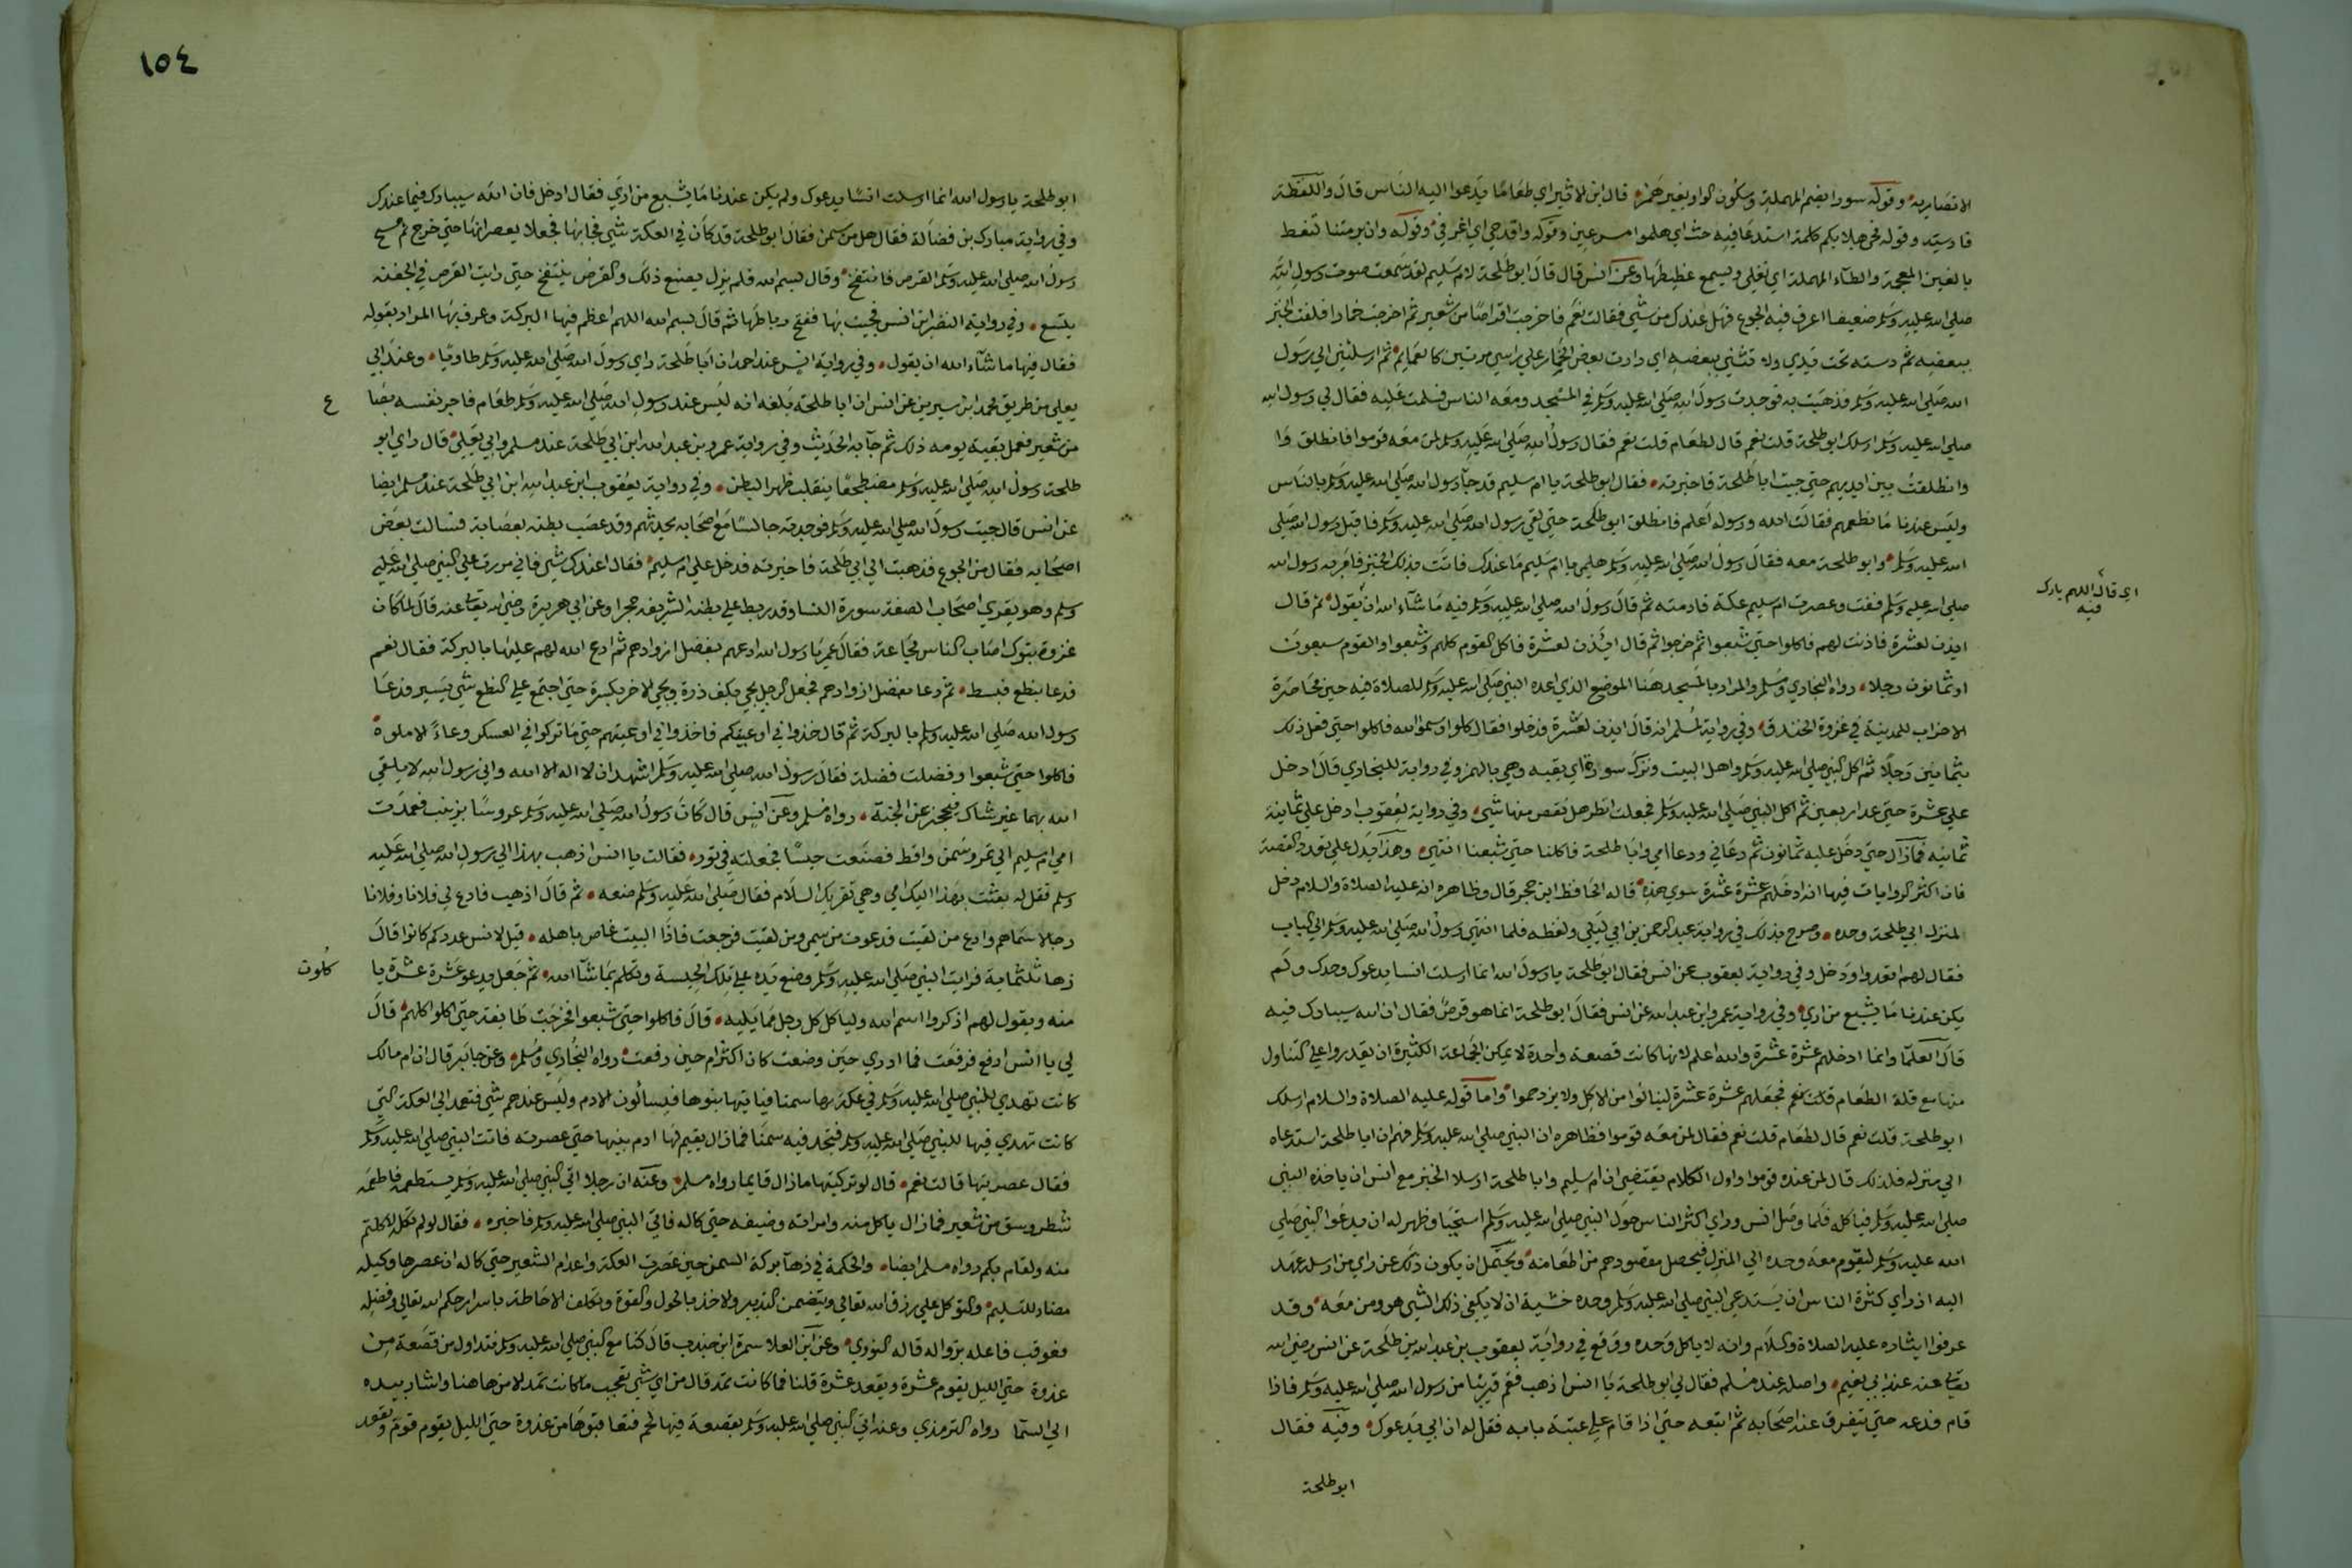 الانصارية وقوله سورا بضم المهملة وسكون الواو بغير همز قال ابن الاثير اي طعاما يدعوا اليه الناس قال واللفظة
فارسية وقوله فحي هلا بكم كلمة استدعا فيه حث اي هلموا مسرعين وقوله واقدحي اي اغرفي وقوله وان برمتنا لتغط
بالغين المعجمة والطاء المهملة اي تغلي ويسمع غطيطها وعن انس قال قال ابو طلحة لام سليم لقد سمعت صوت رسول الله
صلى الله عليه وسلم ضعيفا اعرف فيه الجوع فهل عندك من شي فقالت نعم فاخرجت اقراصا من شعير ثم اخرجت خمارا فلفت الخبز
ببعضه ثم دسته تحت يدي ولا ثتني ببعضه اي ادارت بعض الخمار على راسي مرتين كالعمايم ثم ارسلتني الى رسول
الله صلى الله عليه وسلم فذهبت به فوجدت رسول الله صلى الله عليه وسلم في المسجد ومعه الناس فسلمت عليه فقال لي رسول الله
صلى الله عليه وسلم ارسلك ابو طلحة قلت نعم قال لطعام قلت نعم فقال رسول الله صلى الله عليه وسلم لمن معه قوموا فانطلق وا
وانطلقت بين ايديهم حتى جيت ابا طلحة فاخبرته فقال ابو طلحة يا ام سليم قد جآ رسول الله صلى الله عليه وسلم بالناس
وليس عندنا ما نطعمهم فقالت الله ورسوله اعلم فانطلق ابو طلحة حتى لقي رسول الله صلى الله عليه وسلم فاقبل رسول الله صلى
الله عليه وسلم وابو طلحة معه فقال رسول الله صلى الله عليه وسلم هلمي يا ام سليم ما عندك فاتت بذلك الخبز فامر به رسول الله
صلى الله عليه وسلم ففت وعصرت ام سليم عكة فادمته ثم قال رسول الله صلى الله عليه وسلم فيه ما شاء الله ان يقول ثم قال
اي قال اللهم بارك
فيه
ايذن لعشرة فاذنت لهم فاكلوا حتى شبعوا ثم خرجوا ثم قال ايذن لعشرة فاكل القوم كلهم وشبعوا والقوم سبعون
او ثمانون رجلا رواه البخاري ومسلم والمراد بالمسجد هنا الموضع الذي اعده النبي صلى الله عليه وسلم للصلاة فيه حين محاصرة
الاحزاب للمدينة في غزوة الخندق وفي رواية لمسلم انه قال ايذن لعشرة فدخلوا فقال كلوا وسموا الله فاكلوا حتى فعل ذلك
بثمانين رجلا ثم اكل النبي صلى الله عليه وسلم واهل البيت وترك سورة اي بقيه وهي بالهمز وفي رواية للبخاري قال ادخل
علي عشرة حتى عد اربعين ثم اكل النبي صلى الله عليه وسلم فجعلت انظر هل نقص منها شي وفي رواية يعقوب ادخل علي ثمانية
ثمانيه فمازال حتى دخل عليه ثمانون ثم دعاني ودعا امي وابا طلحة فاكلنا حتى شبعنا انتهى وهذا يدل على تعدد القصة
فان اكثر الروايات فيها انه ادخلهم عشرة عشرة سوى هذه قاله الحافظ ابن حجر قال وظاهره انه عليه الصلاة والسلام دخل
لمنزل ابي طلحة وحده وصرح بذلك في رواية عبد الرحمن بن ابي ليلي ولفظه فلما انتهى رسول الله صلى الله عليه وسلم الى الباب
فقال لهم اقعدوا ودخل وفي رواية يعقوب عن انس فقال ابو طلحة يا رسول الله انما ارسلت انسا يدعوك وحدك ولم
يكن عندنا ما يشبع من ارى وفي رواية عمرو ابن عبد الله عن انس فقال ابو طلحة انما هو قرص فقال ان الله سيبارك فيه
قال العلما وانما ادخلهم عشرة عشرة والله اعلم لانها كانت قصعة واحدة لا يمكن الجماعة الكثيرة ان يقدروا على التناول
منها مع قلة الطعام قلت نعم فجعلهم عشرة عشرة لينالوا من الاكل ولا يزدحموا واما قوله عليه الصلاة والسلام ارسلك
ابو طلحة قلت نعم قال لطعام قلت نعم فقال لمن معه قوموا فظاهره ان النبي صلى الله عليه وسلم فهم ان ابا طلحة استدعاه
الي منزله فلذلك قال لمن عنده قوموا واول الكلام يقتضي ان ام سليم وابا طلحة ارسلا الخبز مع انس ان ياخذه النبي
صلى الله عليه وسلم فياكله فلما وصل انس وراي اكثر الناس حول النبي صلى الله عليه وسلم استحيا وظهر له ان يدعوا النبي صلي
الله عليه وسلم ليقوم معه وحده الي المنزل فيحصل مقصودهم من اطعامه ويحتمل ان يكون ذلك عن راي من ارسله عهد
اليه اذ راي كثرة الناس ان يستدعي النبي صلى الله عليه وسلم وحده خشية ان لا يكفي ذلك الشي هو ومن معه وقد
عرفوا ايثاره عليه الصلاة والسلام وانه لا ياكل وحده ووقع في رواية يعقوب بن عبد الله بن طلحة عن انس رضي الله
تعالى عنه عند ابي نعيم واصله عند مسلم فقال لي ابو طلحة يا انس اذهب فقم قريبا من رسول الله صلى الله عليه وسلم فاذا
قام فدعه حتى يتفرق عنه اصحابه ثم اتبعه حتى اذا قام على عتبة بابه فقل له ان ابي يدعوك وفيه فقال
ابو طلحة
١٥٤
ابو طلحة يا رسول الله انما ارسلت انسا يدعوك ولم يكن عندنا ما يشبع من ارى فقال ادخل فان الله سيبارك فيما عندك
وفي رواية مبارك بن فضالة فقال هل من سمن فقال ابو طلحة قد كان في العكة شي فجا بها فجعلا يعصرانها حتى خرج ثم مسح
رسول الله صلى الله عليه وسلم القرص فانتفخ وقال بسم الله فلم يزل يصنع ذلك والقرص ينتفخ حتى رايت القرص في الجفنه
يتسع وفي رواية النضر ابن انس فجيت بها ففتح رباطها ثم قال بسم الله اللهم اعظم فيها البركة وعرف بها المراد بقوله
فقال فيها ما شاء الله ان يقول وفي رواية انس عند احمد ان ابا طلحة راي رسول الله صلى الله عليه وسلم طاويا وعند ابي
يعلي من طريق محمد ابن سيرين عن انس ان ابا طلحة بلغه انه ليس عند رسول الله صلى الله عليه وسلم طعام فاجر نفسه بصا
ع
من شعير فعمل بقية يومه ذلك ثم جآ به الحديث وفي رواية عمرو بن عبد الله ابن ابي طلحة عند مسلم وابي يعلي قال راي ابو
طلحة رسول الله صلى الله عليه وسلم مضطجعا يتقلب ظهرا لبطن وفي رواية يعقوب ابن عبد الله ابن ابي طلحة عند مسلم ايضا
عن انس قال جيت رسول الله صلى الله عليه وسلم فوجدته جالسا مع اصحابه يحدثهم وقد عصب بطنه بعصابة فسالت بعض
اصحابه فقال من الجوع فذهبت الي ابي طلحة فاخبرته فدخل على ام سليم فقال اعندك شي فاني مررت علي النبي صلى الله عليه
وسلم وهو يقري اصحاب الصفة سورة النسا وقد ربط على بطنه الشريفه حجرا وعن ابي هريرة رضي الله تعالى عنه قال لما كان
غزوة تبوك اصاب الناس مجاعة فقال عمر يا رسول الله ادعهم بفضل ازوادهم ثم ادع الله لهم عليها بالبركة فقال نعم
فدعا بنطع فبسط ثم دعا بفضل ازوادهم فجعل الرجل يجي بكف ذرة ويجي الاخر بكسرة حتى اجتمع علي النطع شي يسير فدعا
رسول الله صلى الله عليه وسلم بالبركة ثم قال خذوا في اوعيتكم فاخذوا في اوعيتهم حتى ما تركوا في العسكر وعاء الا ملوه
فاكلوا حتى شبعوا وفضلت فضلة فقال رسول الله صلى الله عليه وسلم اشهد ان لا اله الا الله واني رسول الله لا يلقي
الله بهما غير شاك فيحجز عن الجنة رواه مسلم وعن انس قال كان رسول الله صلى الله عليه وسلم عروسا بزينب فعمدت
امي ام سليم الي تمر وسمن واقط فصنعت حيسا فجعلته في تور فقالت يا انس اذهب بهذا الي رسول الله صلى الله عليه
وسلم فقل له بعثت بهذا اليك امي وهي تقريك السلام فقال صلى الله عليه وسلم ضعه ثم قال اذهب فادع لي فلانا وفلانا
رجالا سماهم وادع من لقيت فدعوت من سمى ومن لقيت فرجعت فاذا البيت غاص باهله قيل لانس عدد كم كانوا قال
زها ثلثماية فرايت النبي صلى الله عليه وسلم وضع يده على تلك الحيسة وتكلم بما شاء الله ثم جعل يدعو عشرة عشرة يا
كلون
منه ويقول لهم اذكروا اسم الله ولياكل كل رجل مما يليه قال فاكلوا حتى شبعوا فخرجت طايفة حتى اكلوا كلهم قال
لي يا انس ارفع فرفعت فما ادري حين وضعت كان اكثر ام حين رفعت رواه البخاري ومسلم وعن جابر قال ان ام مالك
كانت تهدي للنبي صلى الله عليه وسلم في عكة لها سمنا فياتيها بنوها فيسالون الادم وليس عندهم شي فتعمد الي العكة التي
كانت تهدي فيها للنبي صلى الله عليه وسلم فتجد فيه سمنا فمازال يقيم لها ادم بيتها حتى عصرته فاتت النبي صلى الله عليه وسلم
فقال عصرتيها قالت نعم قال لو تركتيها مازال قايما رواه مسلم وعنه ان رجلا اتي النبي صلى الله عليه وسلم يستطعمه فاطعمه
شطر وسق من شعير فمازال ياكل منه وامراته وضيفه حتى كاله فاتي النبي صلى الله عليه وسلم فاخبره فقال لو لم تكله لاكلتم
منه ولقام بكم رواه مسلم ايضا والحكمة في ذهاب بركة السمن حين عصرت العكة واعدام الشعير حتى كاله ان عصرها وكيله
مضاد للتسليم والتوكل علي رزق الله تعالى ويتضمن التدبير والاخذ بالحول والقوة وتكلف الاحاطة باسرار حكم الله تعالى وفضله
فعوقب فاعله بزواله قاله النووي وعن ابن العلا سمرة ابن جندب قال كنا مع النبي صلى الله عليه وسلم نتداول من قصعة من
غدوة حتى الليل يقوم عشرة ويقعد عشرة قلنا فما كانت تمد قال من اي شي تعجب ما كانت تمد الا من هاهنا واشار بيده
الي السما رواه الترمذي وعنه اتي النبي صلى الله عليه وسلم بقصعة فيها لحم فتعاقبوها من غدوة حتى الليل يقوم قوم ويقعد